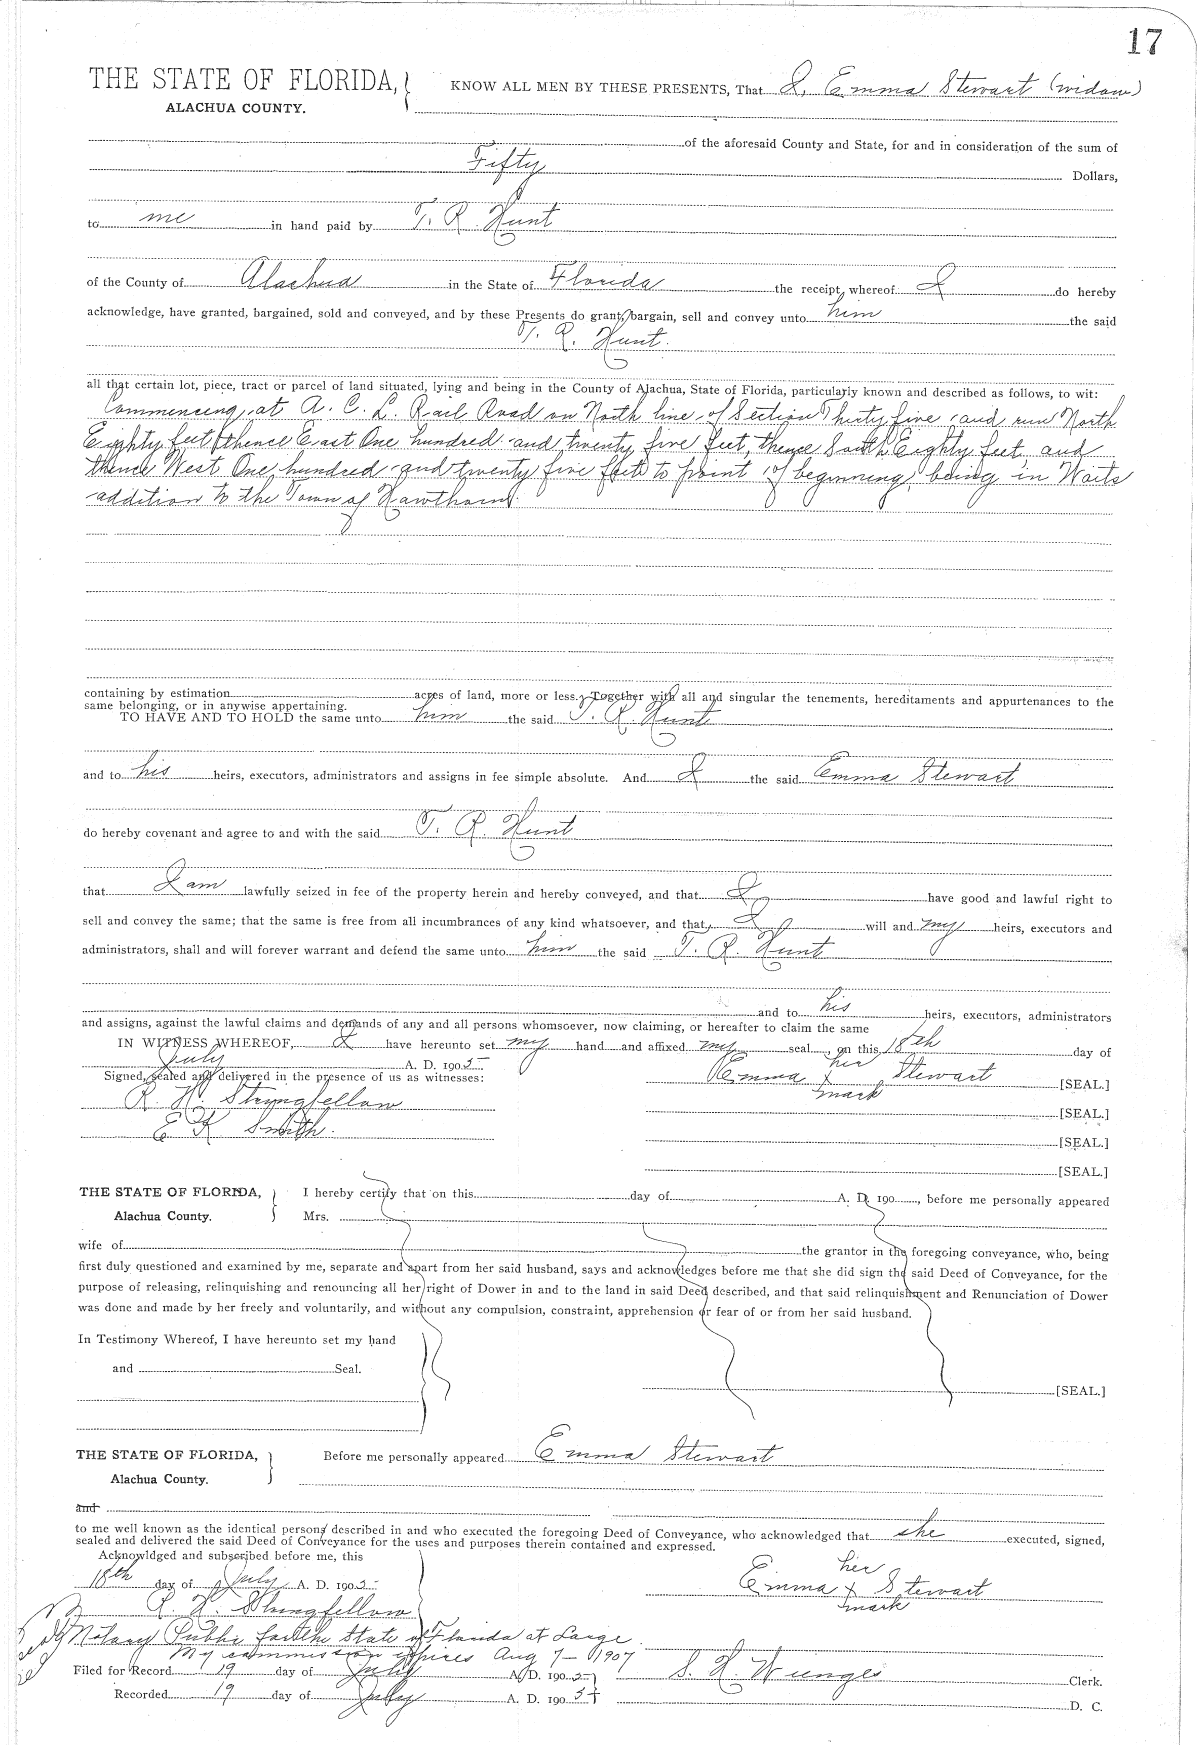 17
THE STATE OF FLORIDA, KNOW ALL MEN BY THESE PRESENTS, That I, Emma Stewart (widow)
ALACHUA COUNTY.
of the aforesaid County and State, for and in consideration of the sum of
Fifty Dollars,
to me in hand paid by T. R. Hunt
of the County of Alachua in the State of Florida the receipt whereof I do hereby
acknowledge, have granted, bargained, sold and conveyed, and by these Presents do grant, bargain, sell and convey unto him the said
T. R. Hunt.
all that certain lot, piece, tract or parcel of land situated, lying and being in the County of Alachua, State of Florida, particularly known and described as follows, to wit:
Commencing at A. C. L. Rail Road on North line of Section Thirty five and run North
Eighty feet thence East One hundred and twenty five feet, thence South Eighty feet and
thence West One hundred and twenty five feet to point of beginning, being in Waits
addition to the Town of Hawthorn.
containing by estimation acres of land, more or less. Together with all and singular the tenements, hereditaments and appurtenances to the
same belonging, or in anywise appertaining.
TO HAVE AND TO HOLD the same unto him the said T. R. Hunt
and to his heirs, executors, administrators and assigns in fee simple absolute. And I the said Emma Stewart
do hereby covenant and agree to and with the said T. R. Hunt
that I am lawfully seized in fee of the property herein and hereby conveyed, and that I have good and lawful right to
sell and convey the same; that the same is free from all incumbrances of any kind whatsoever, and that I will and my heirs, executors and
administrators, shall and will forever warrant and defend the same unto him the said T. R. Hunt
and to his heirs, executors, administrators
and assigns, against the lawful claims and demands of any and all persons whomsoever, now claiming, or hereafter to claim the same
IN WITNESS WHEREOF, I have hereunto set my hand and affixed my seal, on this 18th day of
July A. D. 1905
her
Signed, sealed and delivered in the presence of us as witnesses: Emma x Stewart [SEAL.]
mark
R. H. Stringfellow [SEAL.]
E K Smith. [SEAL.]
[SEAL.]
THE STATE OF FLORIDA, I hereby certify that on this day of A. D. 190 , before me personally appeared
Alachua County. Mrs.
wife of the grantor in the foregoing conveyance, who, being
first duly questioned and examined by me, separate and apart from her said husband, says and acknowledges before me that she did sign the said Deed of Conveyance, for the
purpose of releasing, relinquishing and renouncing all her right of Dower in and to the land in said Deed described, and that said relinquishment and Renunciation of Dower
was done and made by her freely and voluntarily, and without any compulsion, constraint, apprehension or fear of or from her said husband.
In Testimony Whereof, I have hereunto set my hand
and Seal.
[SEAL.]
THE STATE OF FLORIDA, Before me personally appeared Emma Stewart
Alachua County.
and
to me well known as the identical persons described in and who executed the foregoing Deed of Conveyance, who acknowledged that she executed, signed,
sealed and delivered the said Deed of Conveyance for the uses and purposes therein contained and expressed.
Acknowldged and subscribed before me, this
her
18th day of July A. D. 1905 Emma x Stewart
mark
R. H. Stringfellow
Notary Public for the State of Florida at Large
My commission expires Aug 7 - 1907
Filed for Record 19 day of July A. D. 1905 S. H. Wienges Clerk.
Recorded 19 day of July A. D. 1905 D. C.